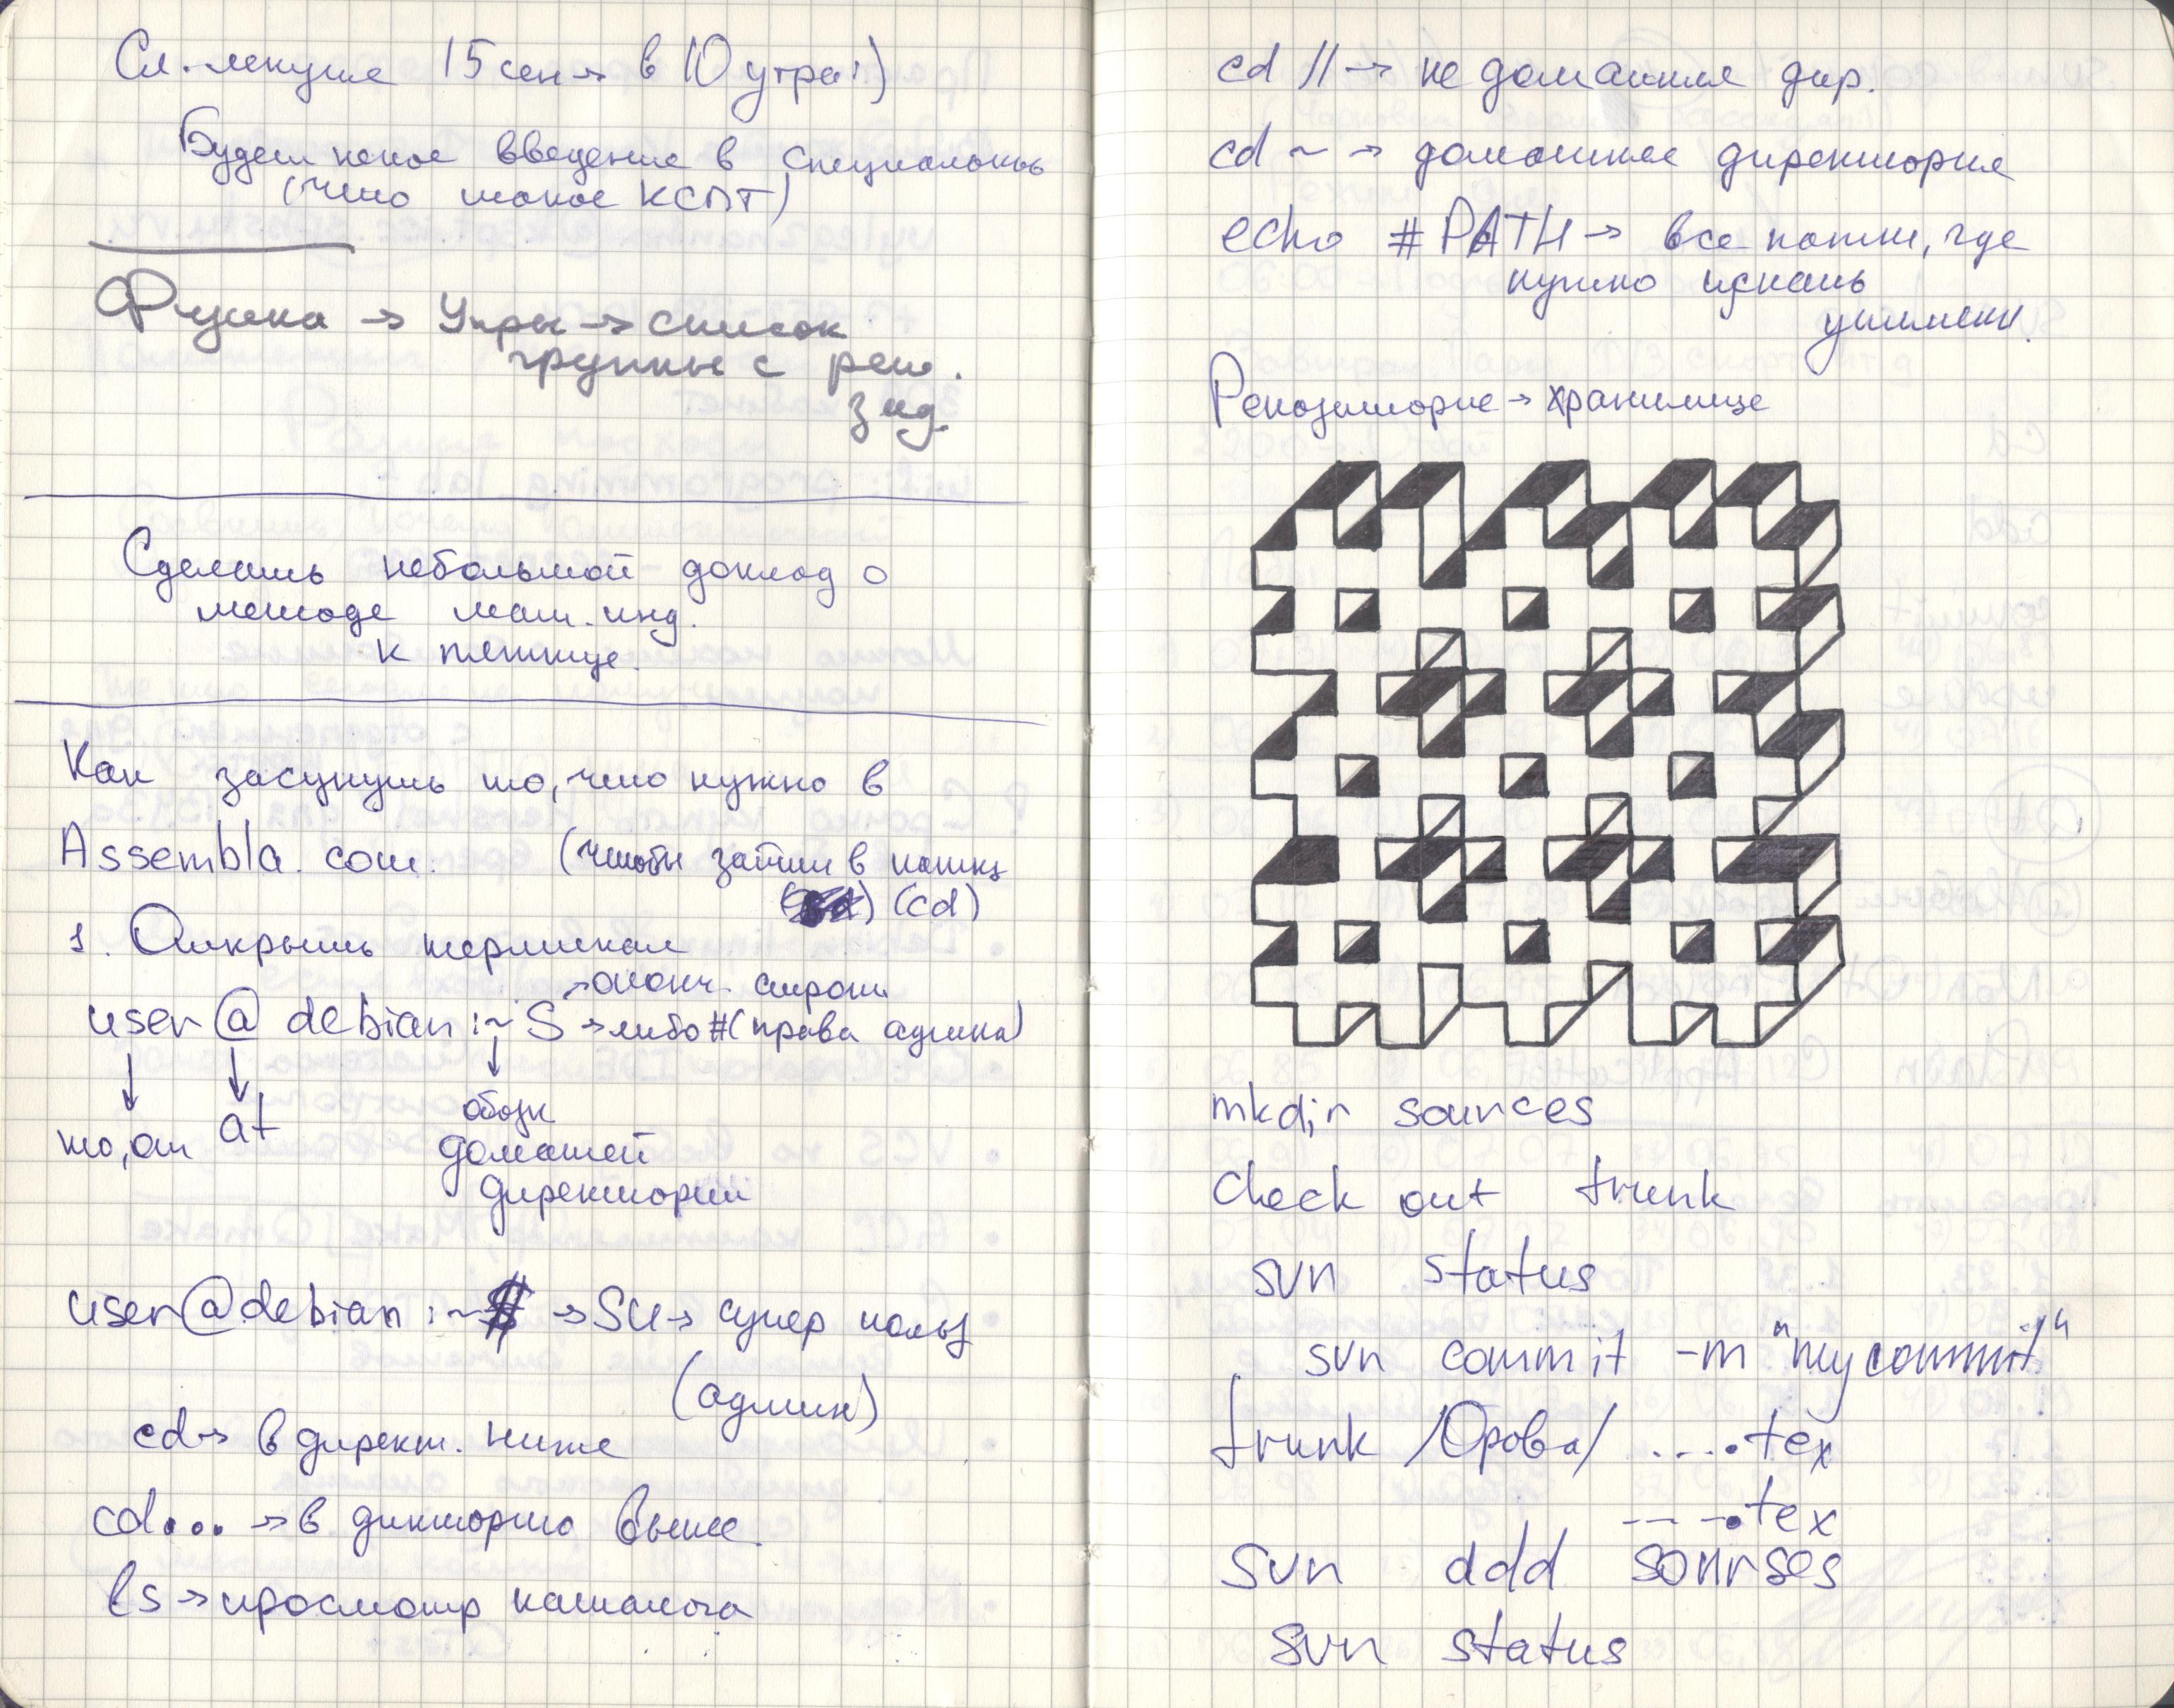 Сл. лекция 15 сен → в 10 утра :)
Будет некое введение в специальность
(что такое КСПТ)
Физика → Упры → список
группы с реш.
зад.
Сделать небольшой доклад о
методе мат. инд.
к пятнице.
Как засунуть то, что нужно в
Assembla.com. (чтобы зайти в папку
(cd)
1. Открыть терминал
→ оконч. строки
user @ debian :~ $ → либо # (права админа)
at
обозн
домашней
директории
user@debian :~$ → su → супер польз
(админ)
cd → в директ. ниже
cd... → в дикторию выше.
ls → просмотр каталога
cd // → не домашняя дир.
cd ~ → домашнее директория
echo # PATH → все папки, где
нужно искать
Репозиторие → хранилище
mkdir sources
check out trunk
svn status
svn commit -m "my commit"
trunk /Орова/ ....•tex
----•tex
svn add sourses
svn status